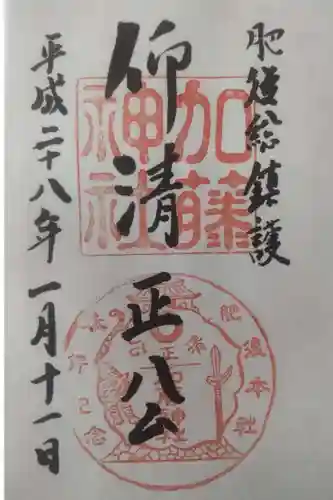 肥後総鎮護
仰清正公
平成二十八年一月十一日
加藤神社
肥後本社